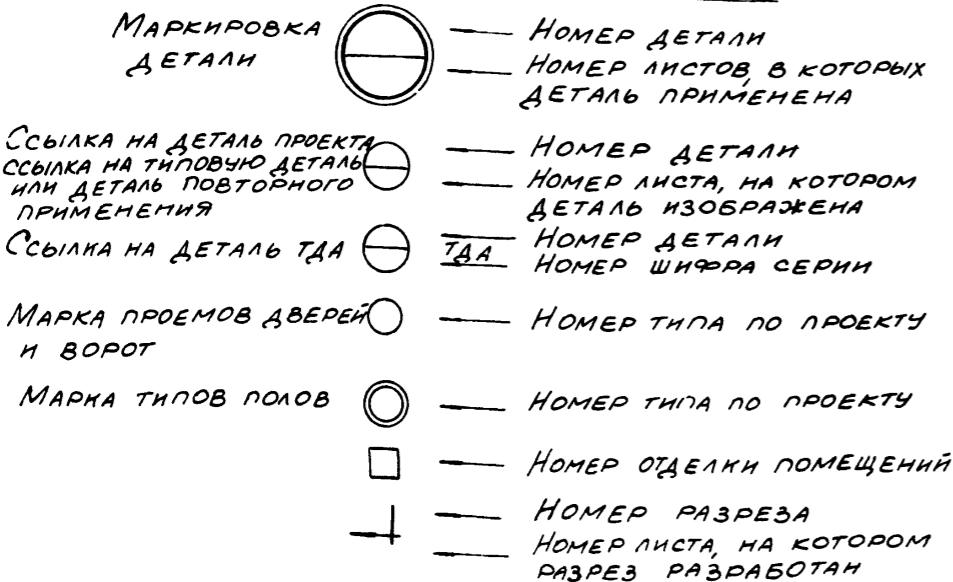 Маркировка
детали
Номер детали
Номер листов, в которых
деталь применена
Ссылка на деталь проекта
ссылка на типовую деталь
или деталь повторного
применения
Номер детали
Номер листа, на котором
деталь изображена
Ссылка на деталь ТДА
ТДА
Номер детали
Номер шифра серии
Марка проемов дверей
и ворот
Номер типа по проекту
Марка типов полов
Номер типа по проекту
Номер отделки помещений
Номер разреза
Номер листа, на котором
разрез разработан